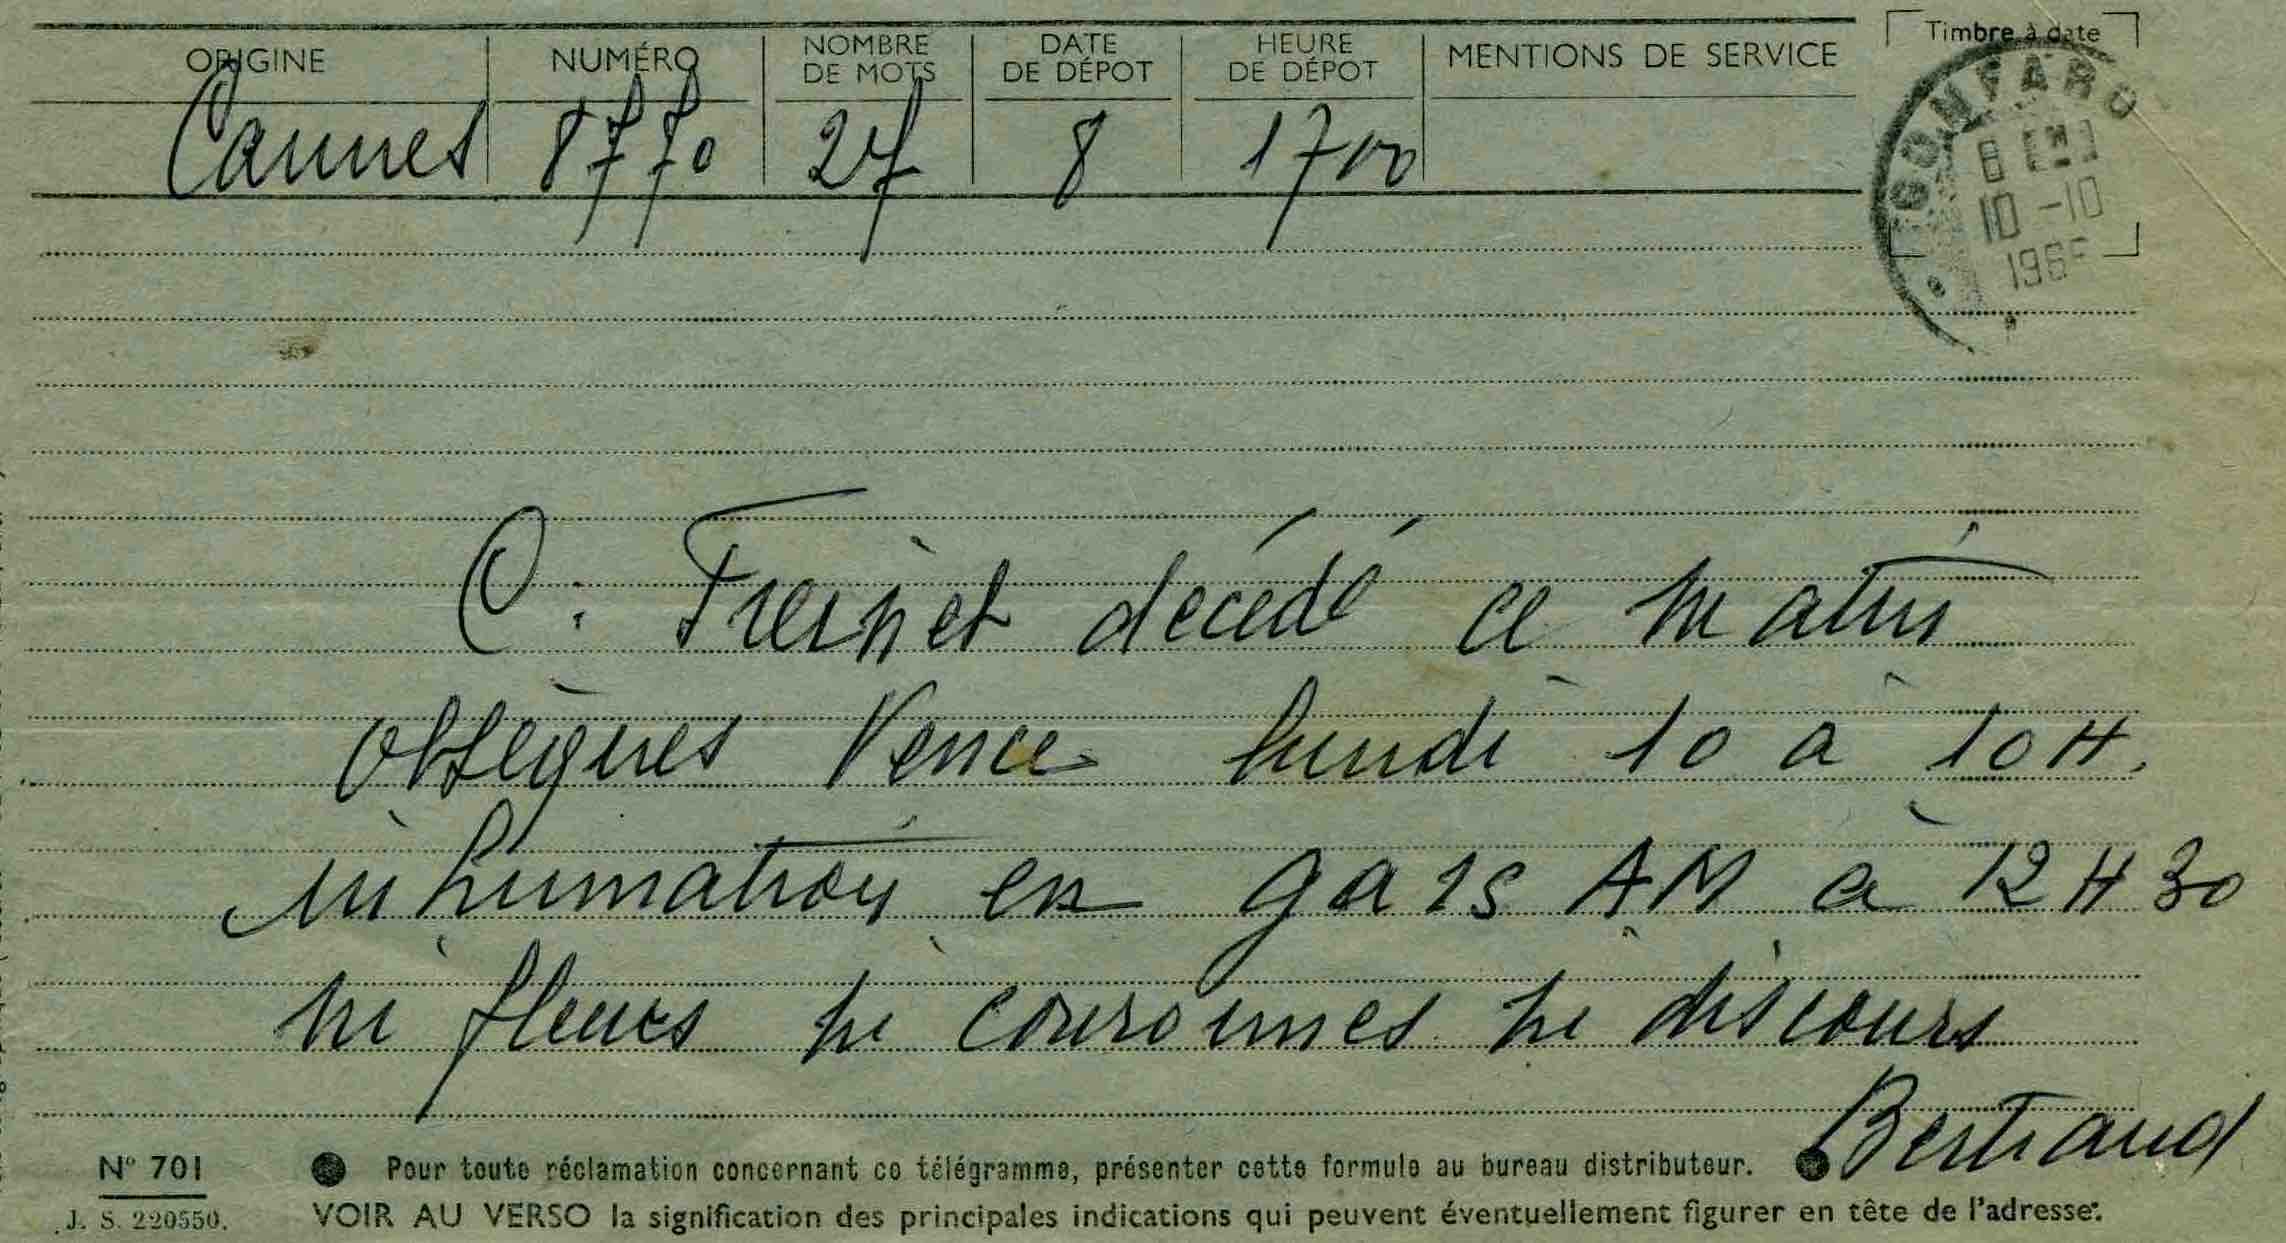 ORIGINE NUMÉRO NOMBRE DE MOTS DATE DE DÉPOT HEURE DE DÉPOT MENTIONS DE SERVICE Timbre à date
Cannes 8770 27 8 1700
GONFARO
10-10
C. Freinet décédé ce matin
obsèques Vence lundi 10 à 10H.
inhumation en gars AM à 12H30
ni fleurs ni couronnes ni discours
Bertrand
N° 701 ● Pour toute réclamation concernant ce télégramme, présenter cette formule au bureau distributeur. ●
J. S. 220550. VOIR AU VERSO la signification des principales indications qui peuvent éventuellement figurer en tête de l'adresse.